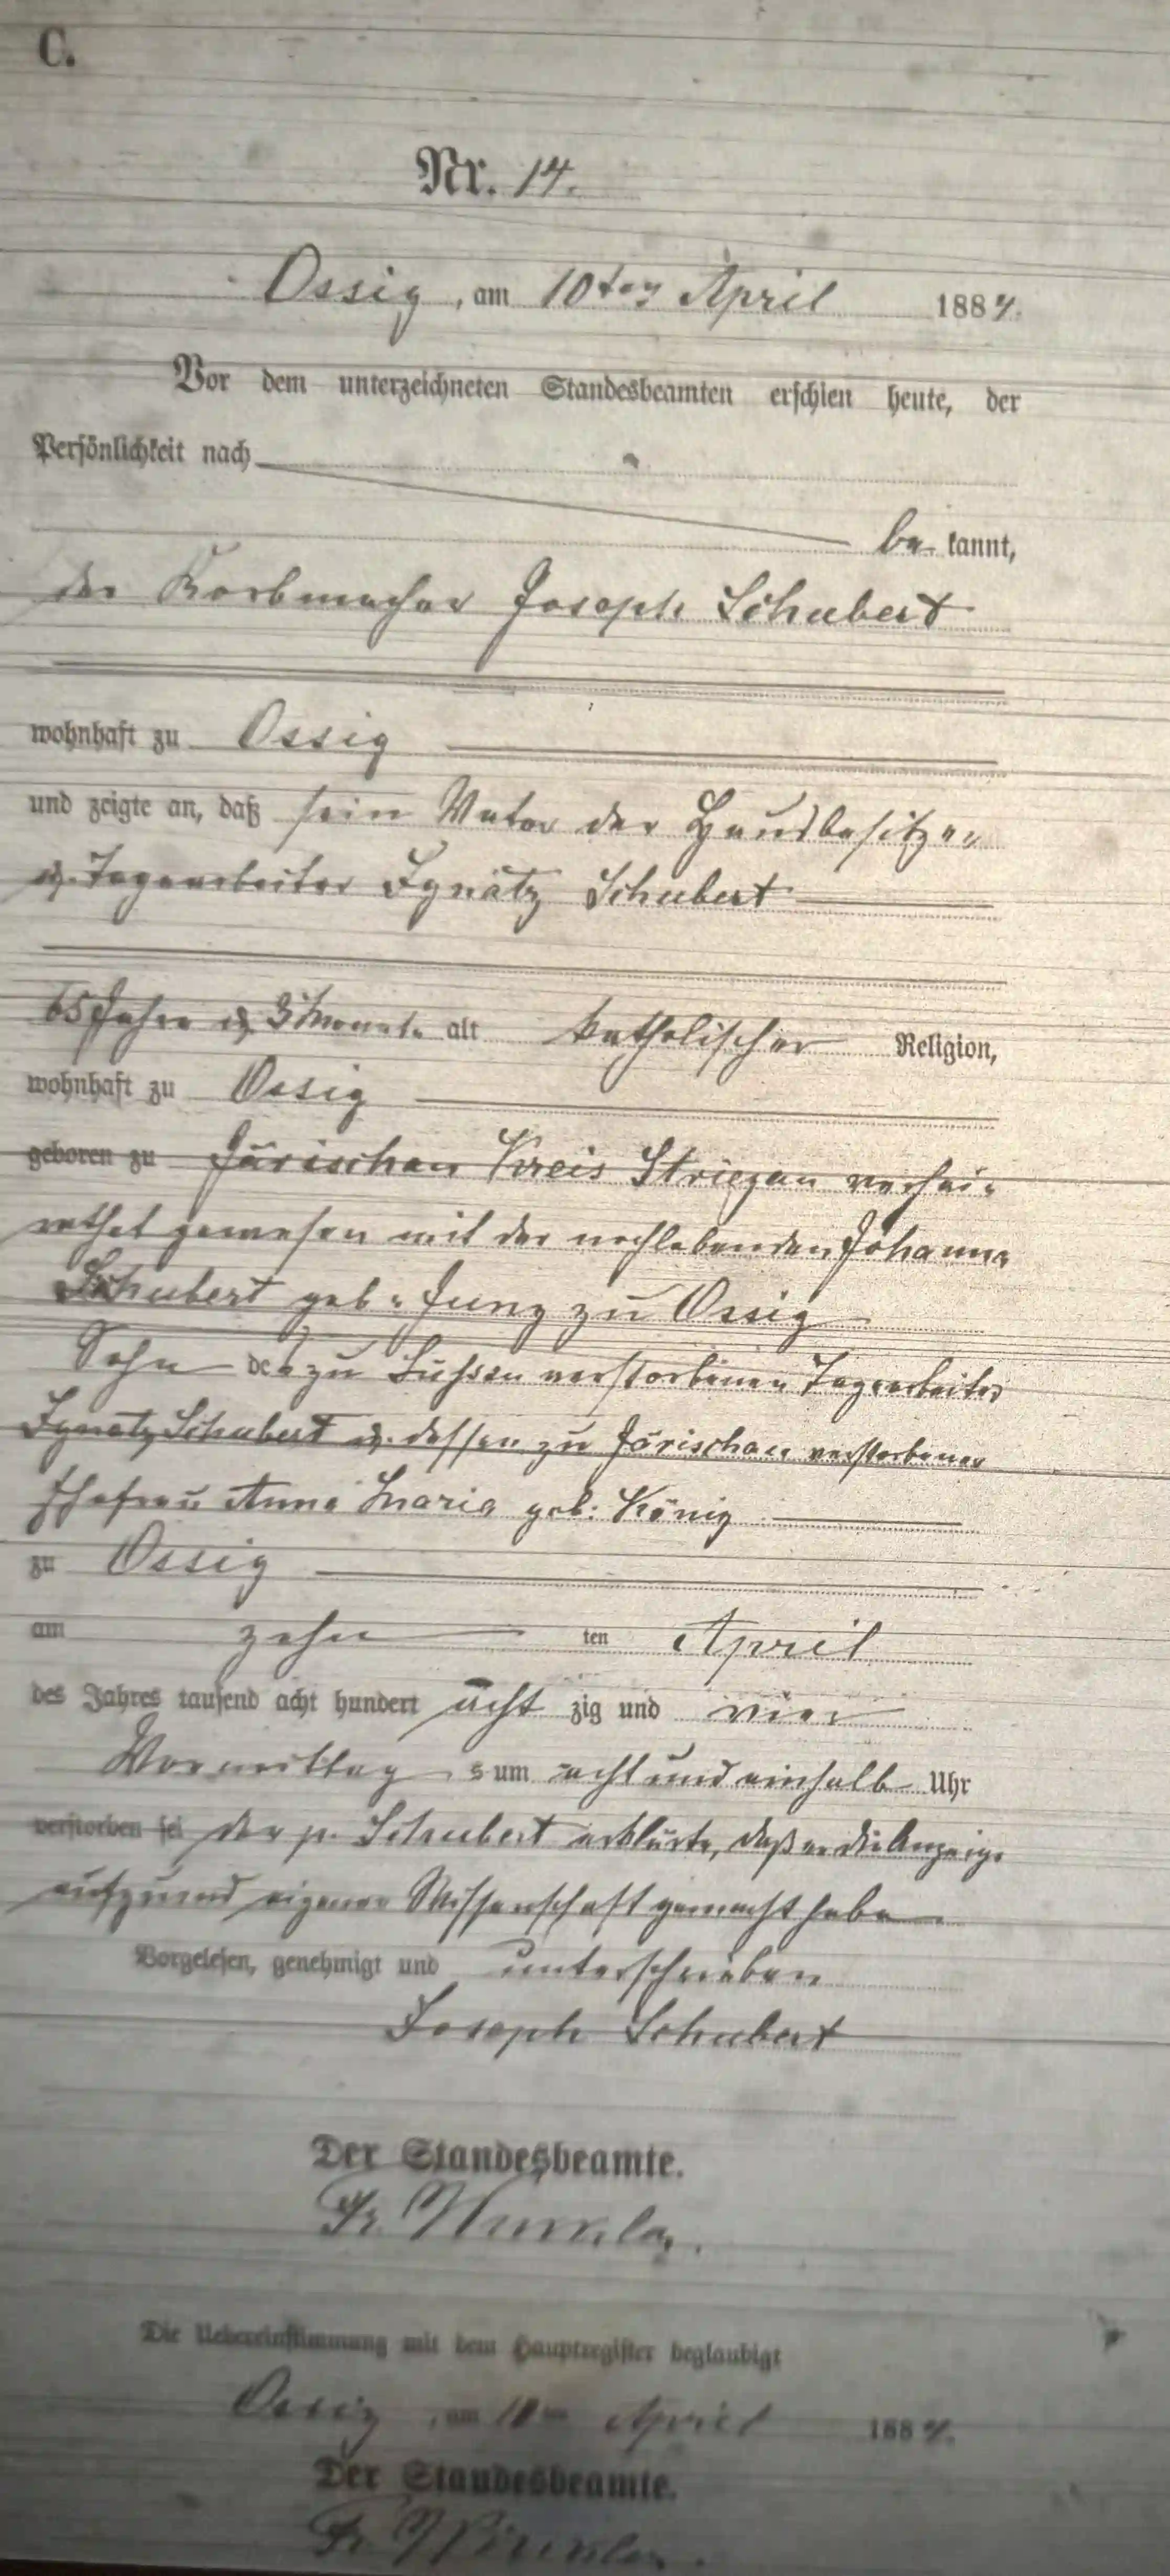 C.
Nr. 14.
Ossig, am 10ten April 1884.
Vor dem unterzeichneten Standesbeamten erschien heute, der
Persönlichkeit nach
be kannt,
der Korbmacher Joseph Schubert
wohnhaft zu Ossig
und zeigte an, daß sein Vater der Hausbesitzer
u. Tagearbeiter Ignatz Schubert
65 Jahre u. 3 Monate alt katholischer Religion,
wohnhaft zu Ossig
geboren zu Järischau Kreis Striegau verhei-
rathet gewesen mit der nochlebenden Johanne
Schubert geb. Jung zu Ossig
Sohn des zu verstorbenen Tagearbeiter
Ignatz Schubert u. dessen zu Järischau verstorbener
Ehefrau Anna Maria geb. König
zu Ossig
am zehn ten April
des Jahres tausend acht hundert acht zig und vier
Vormittag s um acht und einhalb Uhr
verstorben sei der p. Schubert erklärte, daß er die Anzeige
aufgrund eigener Wissenschaft gemacht habe.
Vorgelesen, genehmigt und unterschrieben
Joseph Schubert
Der Standesbeamte.
Fr.
Die Uebereinstimmung mit dem Hauptregister beglaubigt
Ossig, am 10ten April 1884.
Der Standesbeamte.
Fr.